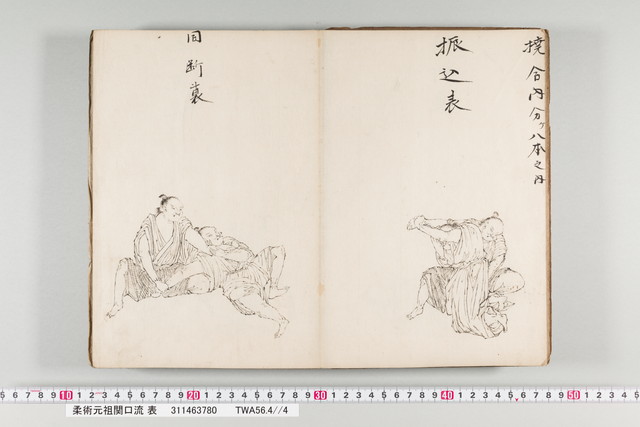 撓合内分ケ八本之内
振込表
裏
5 6 7 8 9 10 1 2 3 4 5 6 7 8 9 20 1 2 3 4 5 6 7 8 9 30 1 2 3 4 5 6 7 8 9 40 1 2 3 4 5 6 7 8 9 50 1 2 3 4 5
柔術元祖関口流 表 311463780 TWA56.4//4